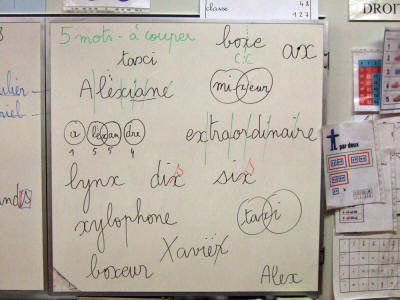 5 mots - à couper
taxci
boxe
CC
ax
Aléxiane
mixeur
a léx an dre
1 5 5 4
extraordinaire
lynx dix six
s s
xylophone
taxi
Xavier
boxeur
Alex
classe 48
127
DROIT
par deux